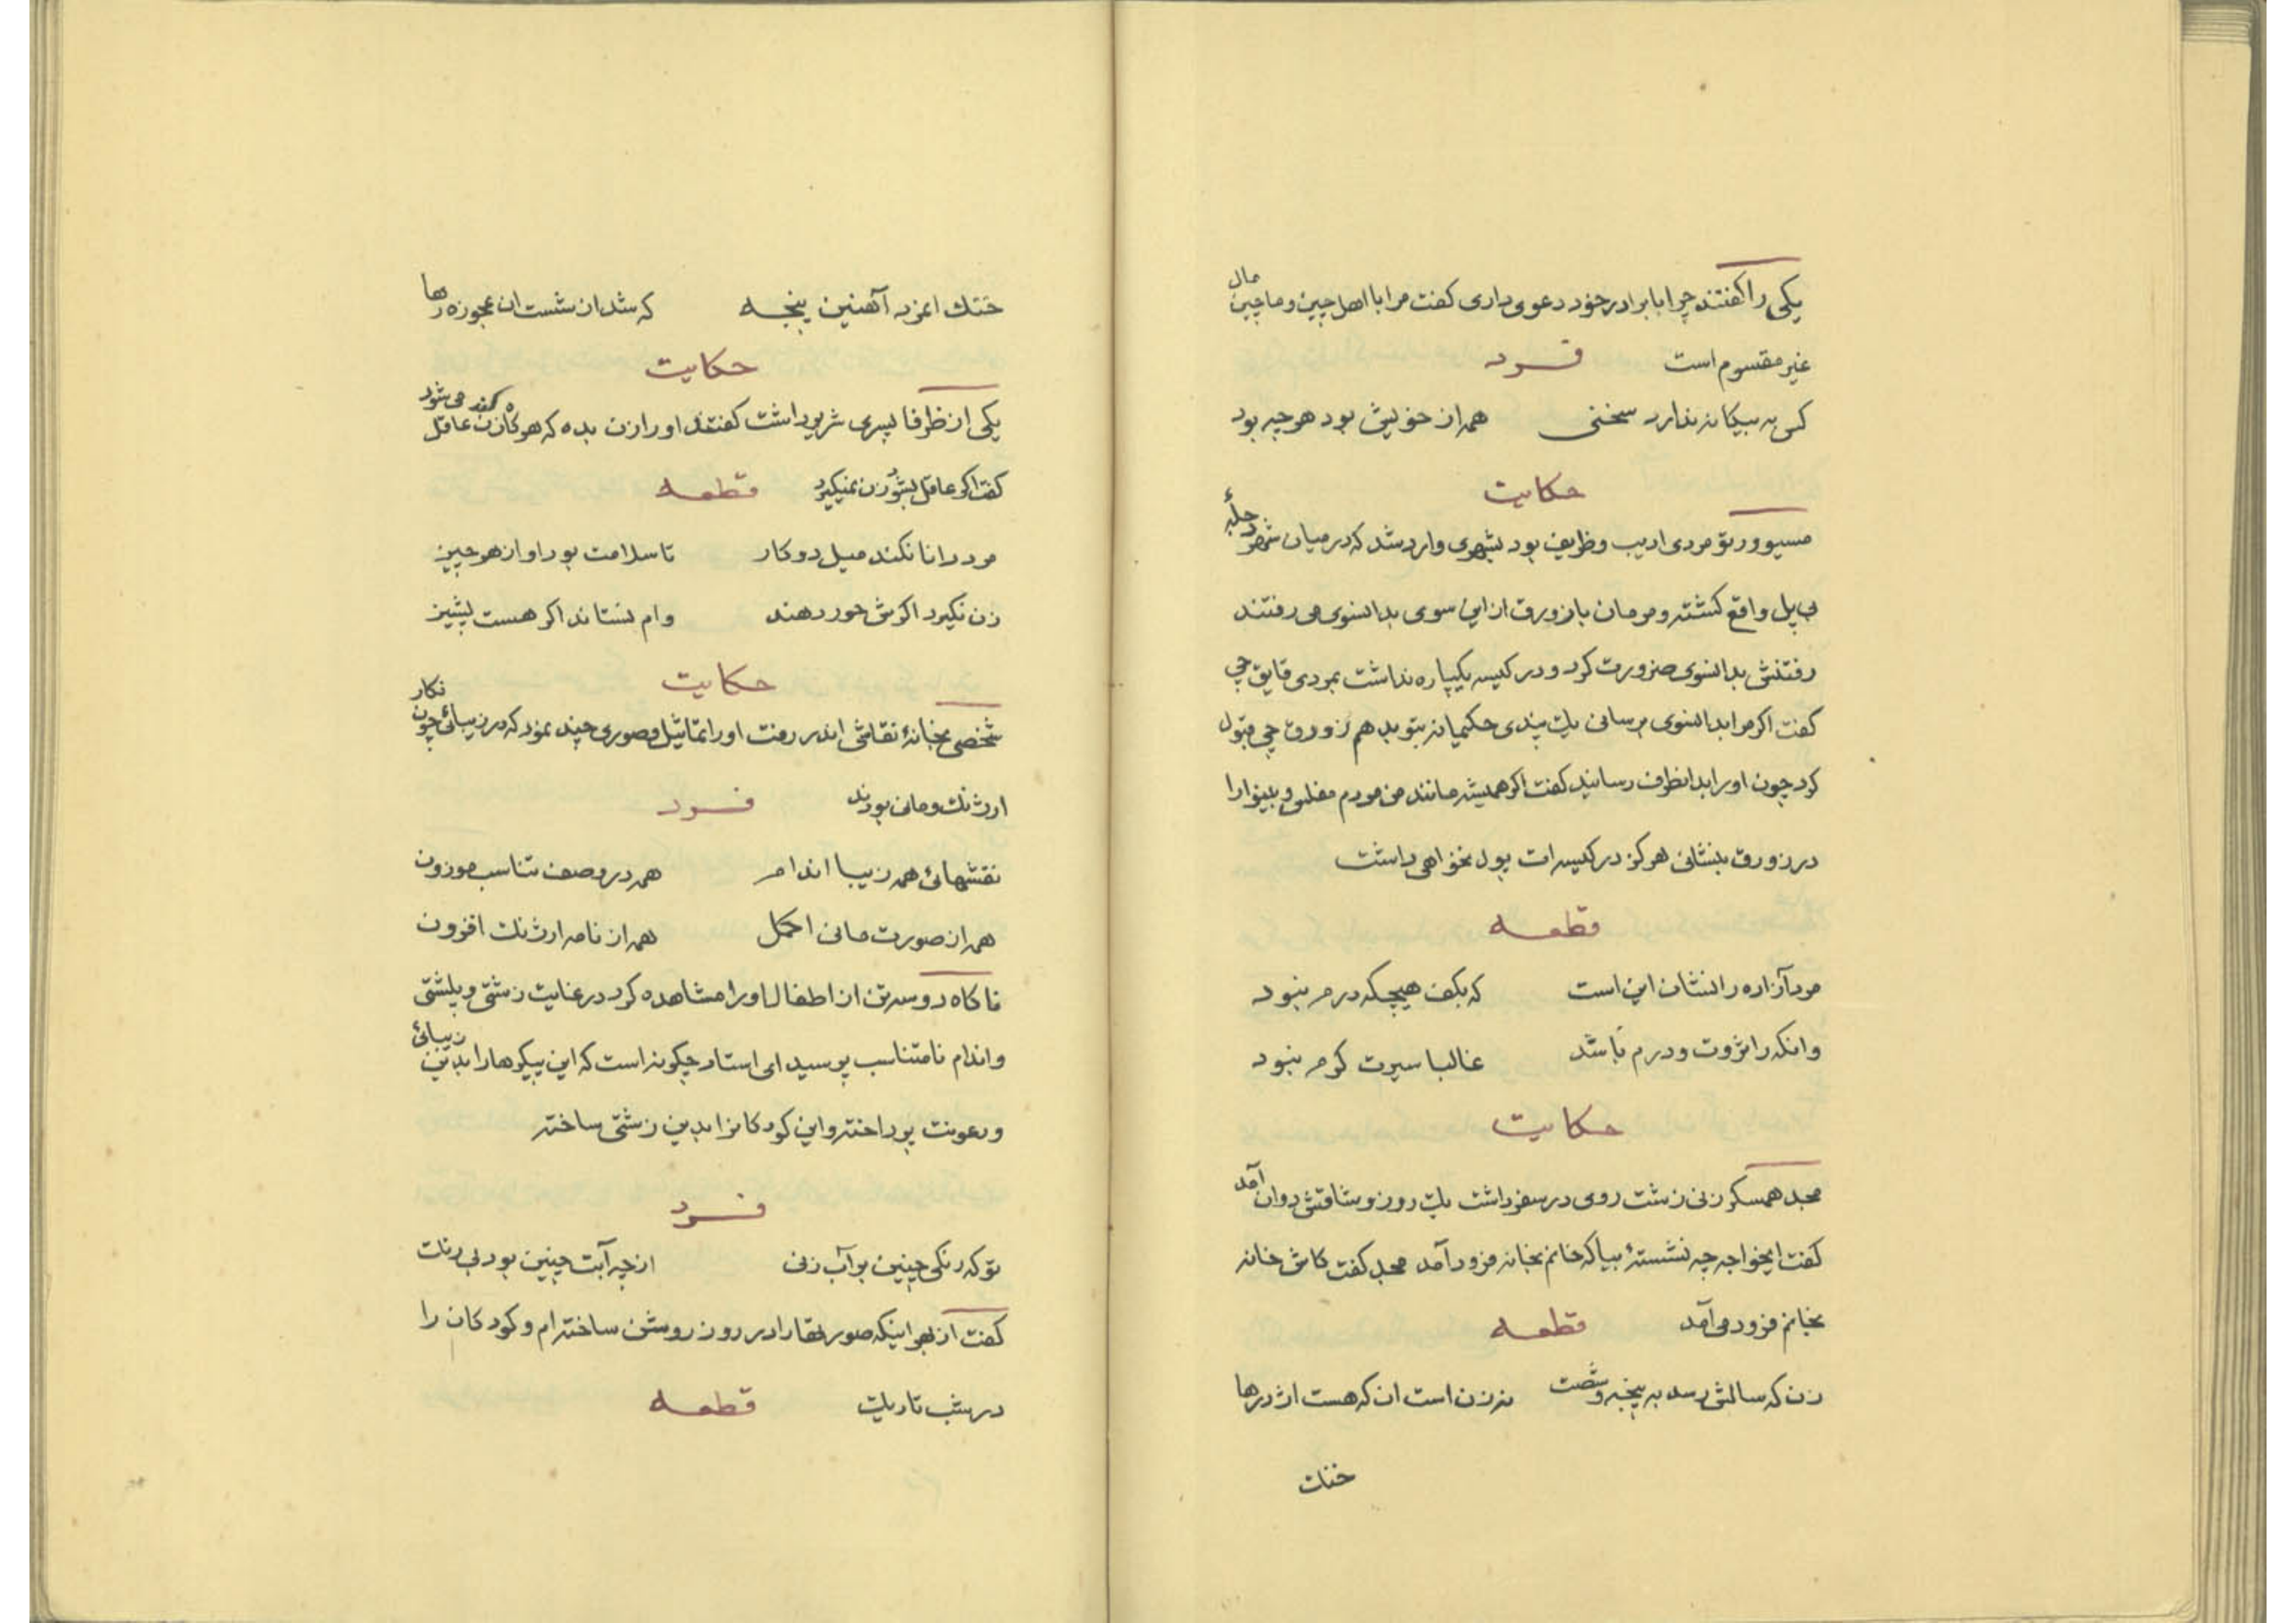 یکی را گفتند چرا با برادر خود دعوی داری گفت مرا با اهل چین و ماچین مال
غیر مقسوم است فرد
کس به بیکانه ندارد سخنی همه از خویش بود هر چه بود
حکایت
مسیو ورتو مردی ادیب و ظریف بود بشهری وارد شد که در میان شهر دجلهٔ
بی پل واقع کشته و مردمان با زورق از این سوی بدانسوی می رفتند
رفتنش بدانسوی ضرورت کرد و در کیسه یکپاره نداشت بمردی قایق چی
کفت اکر مرا بدانسوی برسانی یک پندی حکیمانه بتو بدهم زورق چی قبول
کرد چون او را بدانطرف رسانید کفت اکر همیشه مانند من مردم مفلس و بینوا را
در زورق بنشانی هرکز در کیسه ات پول نخواهی داشت
قطعه
مرد آزاده را نشان این است که بکف هیچکه درم نبود
وانکه را ثروت و درم باشد غالبا سیرت کرم نبود
حکایت
مجد همسکر زنی زشت روی در سفر داشت یک روز وشاقش دوان آمد
کفت ایخواجه چه نشستهٔ بیا که خانم بخانه فرود آمد مجد کفت کاش خانه
بخانم فرود می آمد قطعه
زن که سالش رسد به پنجه و شصت نه زن است ان که هست اژدرها
خنک
خنک امزد آهنین پنجه که شد از شست ان عجوزه رها
حکایت
یکی از ظرفا پسری شریر داشت کفتند او را زن بده که هر کاه زن کند عاقل می شود
کفت اکر عاقل بشود زن نمیکیرد قطعه
مرد دانا نکند میل دو کار تا سلامت بود او از هر چیز
زن نکیرد اکرش حور دهند وام نستاند اکر هست پشیز
حکایت
شخصی بخانهٔ نقاشی اندر رفت او را تماثیل و صوری چند بمود که در زیبائی چون نکار
ارژنک و مانی بودند فرد
نقشهائی همه زیبا اندام همه در وصف تناسب موزون
همه از صورت مانی اجمل همه از نامه ارژنک افزون
ناکاه دو سه تن از اطفال او را مشاهده کرد در غایت زشتی و پلشتی
و اندام نامتناسب پرسید ای استاد چکونه است که این پیکرها را بدین زیبائی
و رعونت پرداخته و این کودکانرا بدین زشتی ساخته
فرد
تو که رنکی چنین بر آب زنی از چه آبت چنین بود بی رنک
کفت از بهر اینکه صورتها را در روز روشن ساخته ام و کودکان را
در شب تاریک قطعه